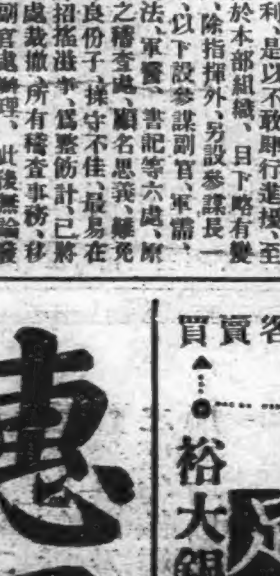 利、是以不敢即行進接、至
於本部組織、目下略有變
、除指揮外、另設參謀長一
、以下設參謀副官、軍需、
法、軍醫、書記等六處、原
之稽查處、顧名思義、難免
良份子、操守不佳、最易在
招搖滋事、爲整飭計、已將
處裁撤、所有稽查事務、移
副官處辦理、此後無論
客
賣
買
裕大銀
惠